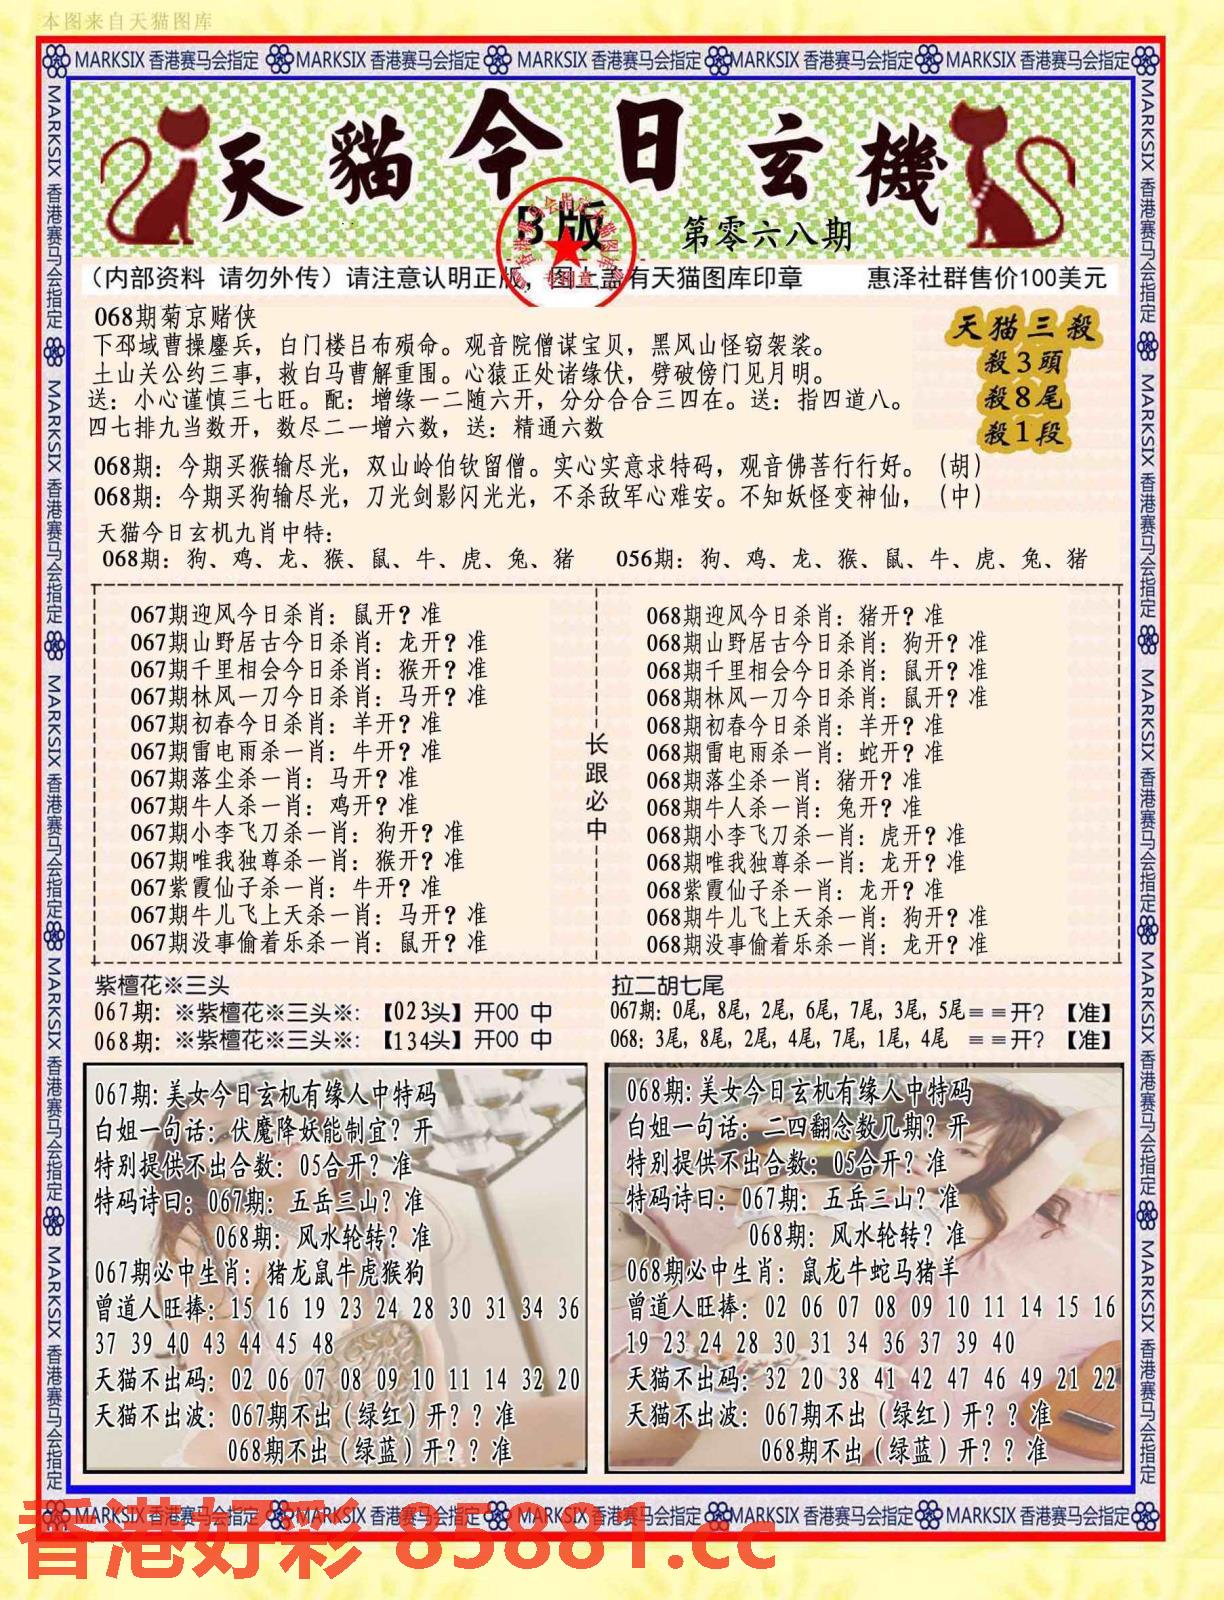 本图来自天猫图库
MARKSIX 香港赛马会指定 MARKSIX 香港赛马会指定 MARKSIX 香港赛马会指定 MARKSIX 香港赛马会指定 MARKSIX 香港赛马会指定
天貓今日玄機
B版
第零六八期
（内部资料 请勿外传）请注意认明正版，图上盖有天猫图库印章 惠泽社群售价100美元
068期菊京赌侠
下邳域曹操鏖兵，白门楼吕布殒命。观音院僧谋宝贝，黑风山怪窃袈裟。
土山关公约三事，救白马曹解重围。心猿正处诸缘伏，劈破傍门见月明。
送：小心谨慎三七旺。配：增缘一二随六开，分分合合三四在。送：指四道八。
四七排九当数开，数尽二一增六数，送：精通六数
天猫三殺
殺3頭
殺8尾
殺1段
068期：今期买猴输尽光，双山岭伯钦留僧。实心实意求特码，观音佛菩行行好。（胡）
068期：今期买狗输尽光，刀光剑影闪光光，不杀敌军心难安。不知妖怪变神仙，（中）
天猫今日玄机九肖中特：
068期：狗、鸡、龙、猴、鼠、牛、虎、兔、猪 056期：狗、鸡、龙、猴、鼠、牛、虎、兔、猪
067期迎风今日杀肖：鼠开？准
067期山野居古今日杀肖：龙开？准
067期千里相会今日杀肖：猴开？准
067期林风一刀今日杀肖：马开？准
067期初春今日杀肖：羊开？准
067期雷电雨杀一肖：牛开？准
067期落尘杀一肖：马开？准
067期牛人杀一肖：鸡开？准
067期小李飞刀杀一肖：狗开？准
067期唯我独尊杀一肖：猴开？准
067紫霞仙子杀一肖：牛开？准
067期牛儿飞上天杀一肖：马开？准
067期没事偷着乐杀一肖：鼠开？准
长跟必中
068期迎风今日杀肖：猪开？准
068期山野居古今日杀肖：狗开？准
068期千里相会今日杀肖：鼠开？准
068期林风一刀今日杀肖：鼠开？准
068期初春今日杀肖：羊开？准
068期雷电雨杀一肖：蛇开？准
068期落尘杀一肖：猪开？准
068期牛人杀一肖：兔开？准
068期小李飞刀杀一肖：虎开？准
068期唯我独尊杀一肖：龙开？准
068紫霞仙子杀一肖：龙开？准
068期牛儿飞上天杀一肖：狗开？准
068期没事偷着乐杀一肖：龙开？准
紫檀花※三头
067期：※紫檀花※三头※：【023头】开00 中
068期：※紫檀花※三头※：【134头】开00 中
拉二胡七尾
067期：0尾，8尾，2尾，6尾，7尾，3尾，5尾＝＝开？【准】
068：3尾，8尾，2尾，4尾，7尾，1尾，4尾 ＝＝开？【准】
067期：美女今日玄机有缘人中特码
白姐一句话：伏魔降妖能制宜？开
特别提供不出合数：05合开？准
特码诗曰：067期：五岳三山？准
068期：风水轮转？准
067期必中生肖：猪龙鼠牛虎猴狗
曾道人旺捧：15 16 19 23 24 28 30 31 34 36
37 39 40 43 44 45 48
天猫不出码：02 06 07 08 09 10 11 14 32 20
天猫不出波：067期不出（绿红）开？？准
068期不出（绿蓝）开？？准
068期：美女今日玄机有缘人中特码
白姐一句话：二四翻念数几期？开
特别提供不出合数：05合开？准
特码诗曰：067期：五岳三山？准
068期：风水轮转？准
068期必中生肖：鼠龙牛蛇马猪羊
曾道人旺捧：02 06 07 08 09 10 11 14 15 16
19 23 24 28 30 31 34 36 37 39 40
天猫不出码：32 20 38 41 42 47 46 49 21 22
天猫不出波：067期不出（绿红）开？？准
068期不出（绿蓝）开？？准
MARKSIX 香港赛马会指定 MARKSIX 香港赛马会指定 MARKSIX 香港赛马会指定 MARKSIX 香港赛马会指定 MARKSIX 香港赛马会指定
MARKSIX 香港赛马会指定 MARKSIX 香港赛马会指定 MARKSIX 香港赛马会指定 MARKSIX 香港赛马会指定 MARKSIX 香港赛马会指定
MARKSIX 香港赛马会指定 MARKSIX 香港赛马会指定 MARKSIX 香港赛马会指定 MARKSIX 香港赛马会指定 MARKSIX 香港赛马会指定
香港好彩 85881.cc